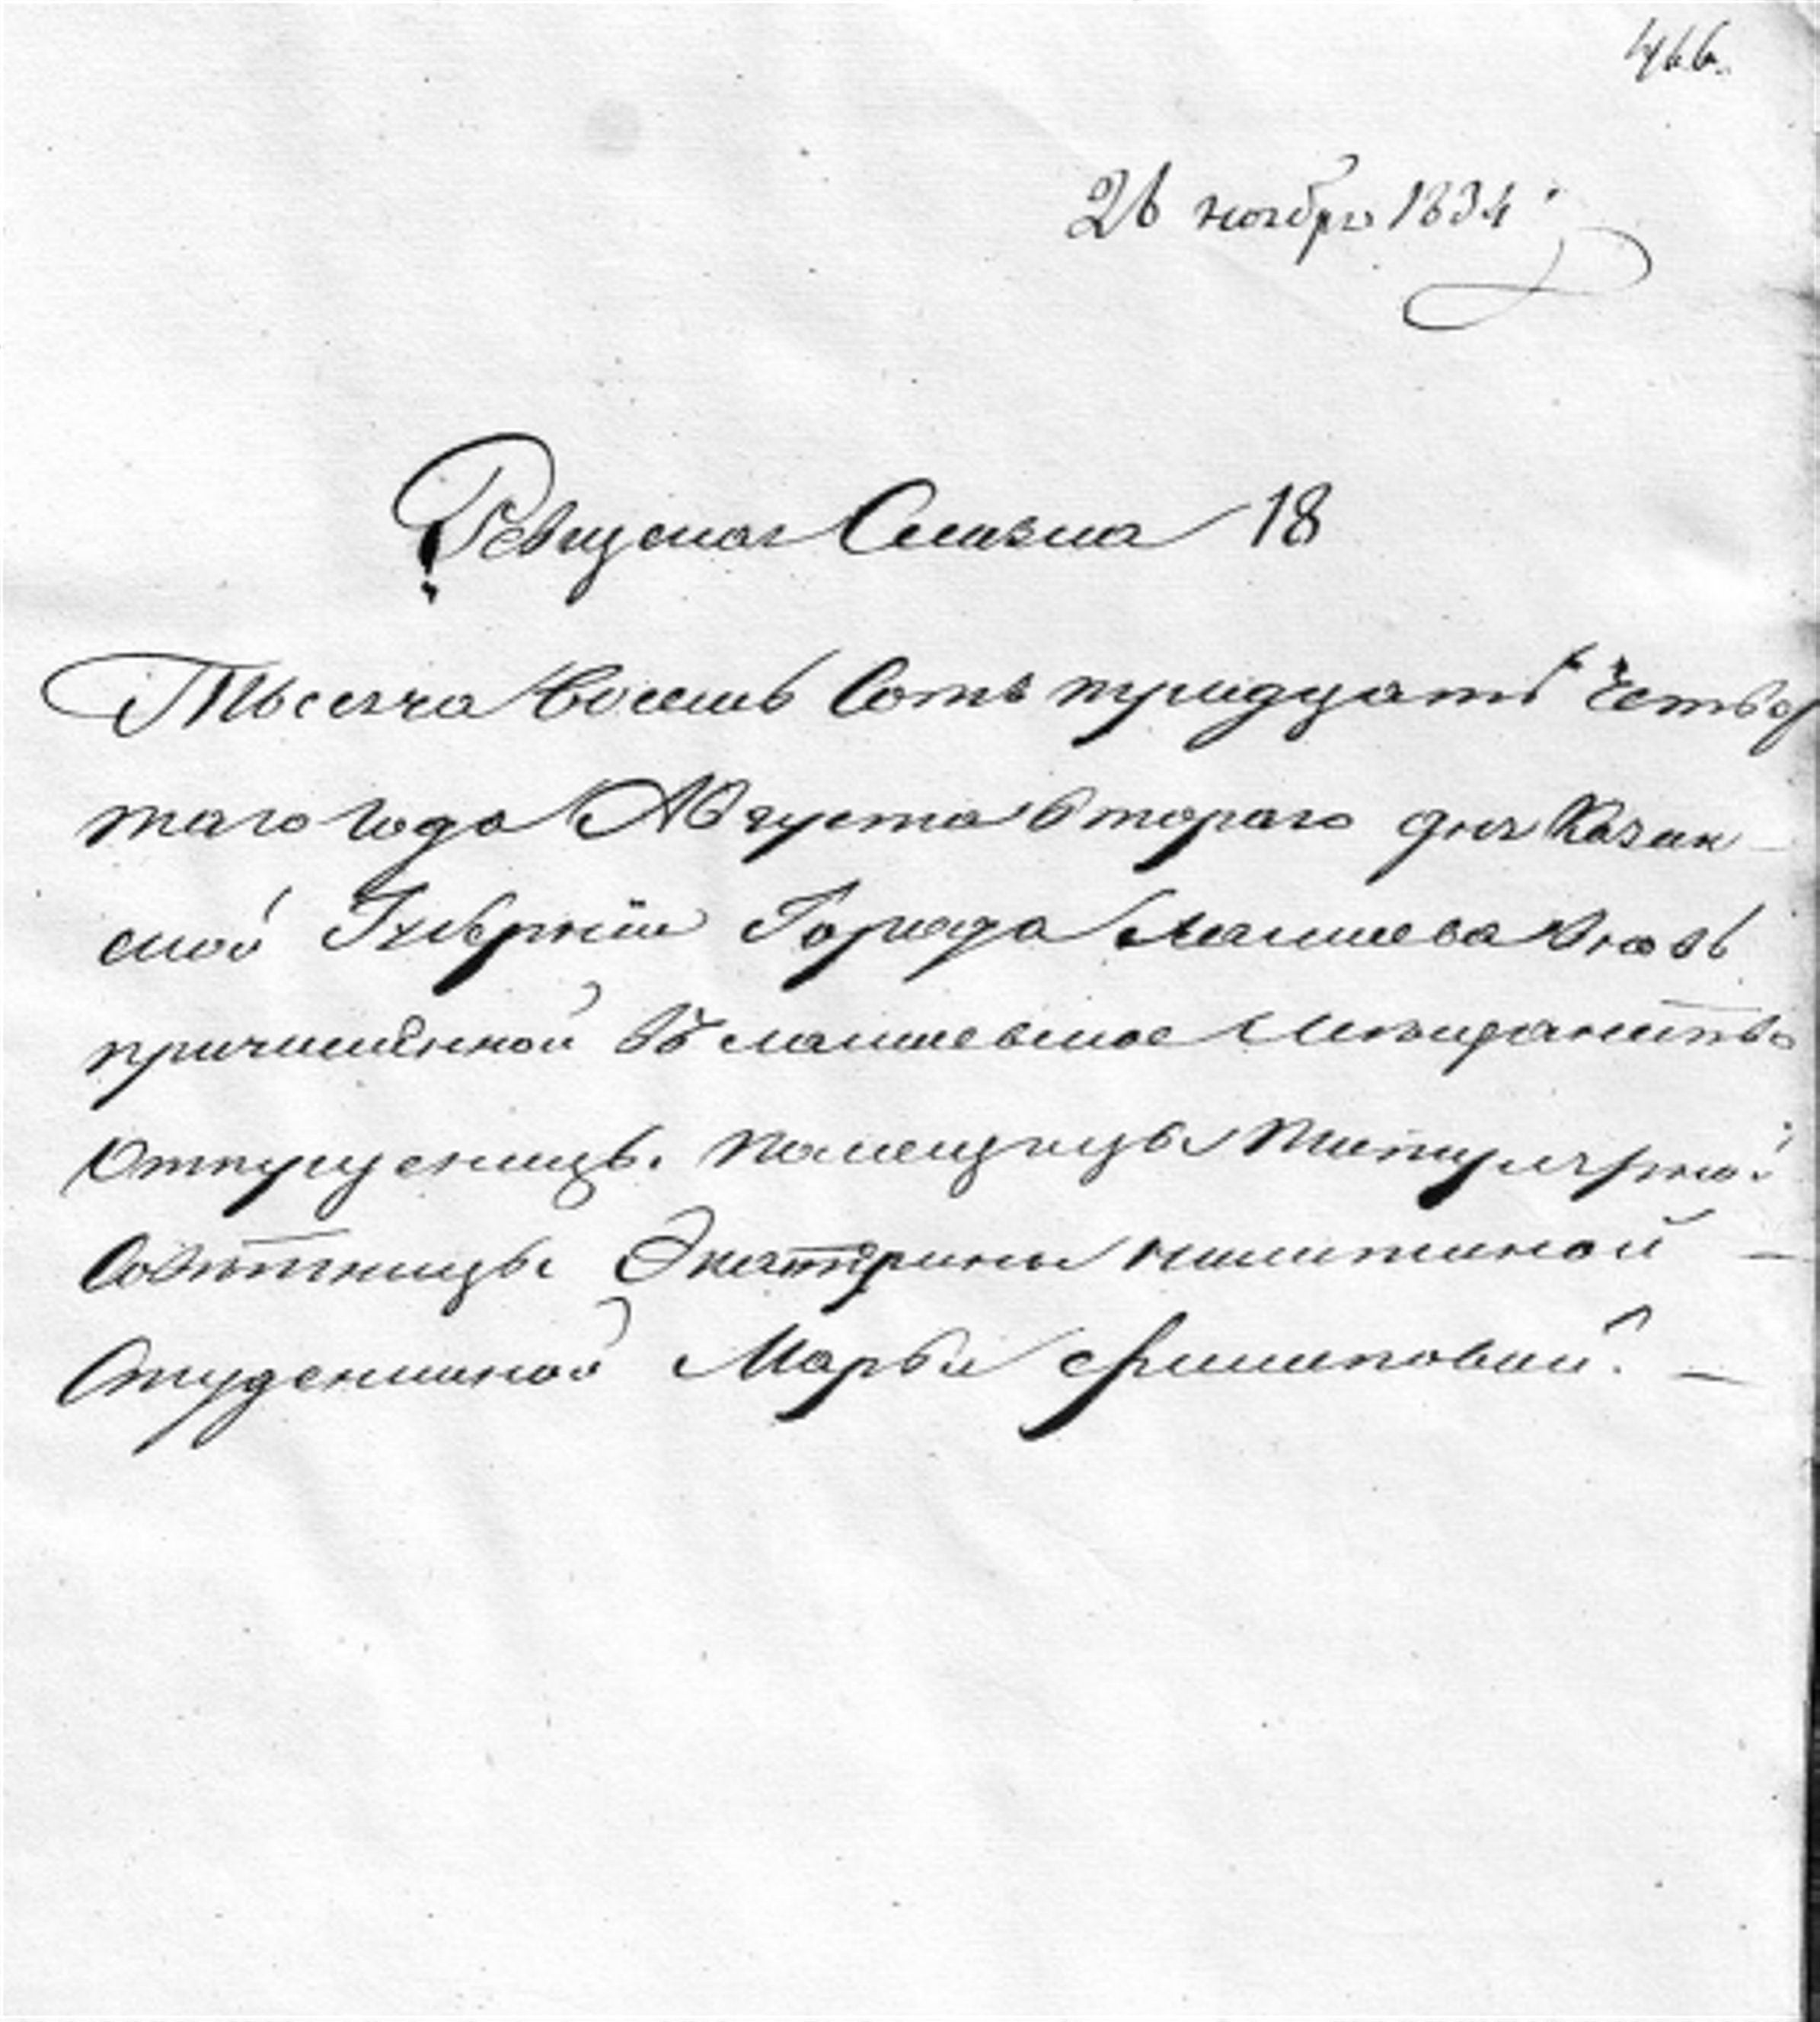 466.
26 ноября 1834
Ревижская Сказка 18
Тысеча восемь Сотъ тридцать четвор
таго года Августа втораго дня Казан
ской Губернiи Города Лаишева вновь
причисленной въ лаишевское Мещанство
Отпущеницы. помещицы титулярной
Советницы Экатерины никитиной
Студенкиной Марьи Филиповой.